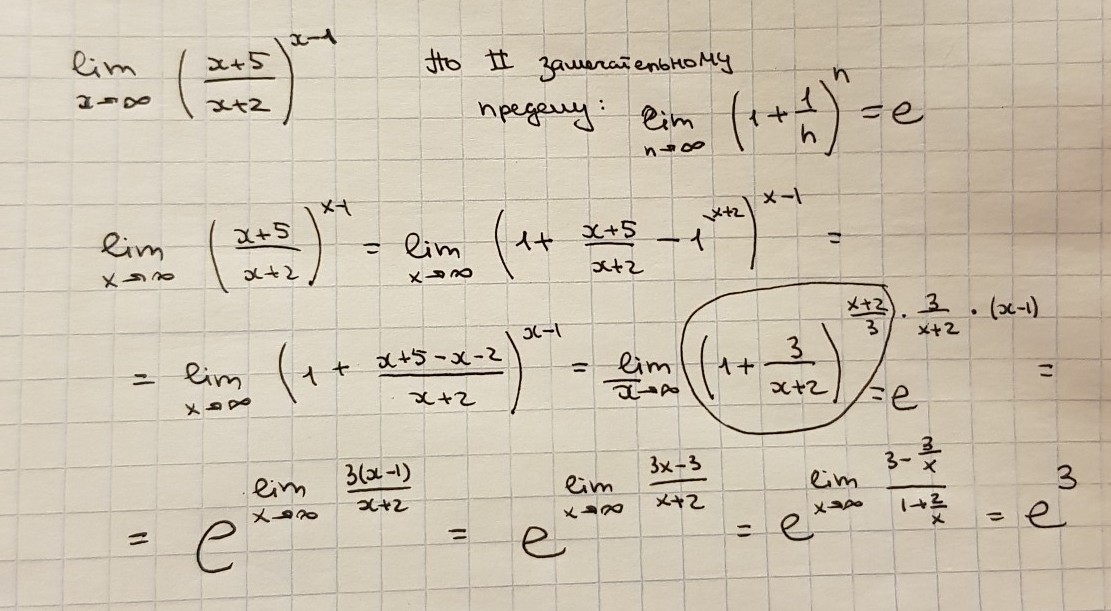 lim x→∞ ((x+5)/(x+2))^(x-1) По II замечательному
пределу: lim n→∞ (1 + 1/n)^n = e
lim x→∞ ((x+5)/(x+2))^(x-1) = lim x→∞ (1 + (x+5)/(x+2) - 1^(\x+2))^(x-1) =
= lim x→∞ (1 + (x+5-x-2)/(x+2))^(x-1) = lim x→∞ (1 + 3/(x+2))^((x+2)/3 · 3/(x+2) · (x-1)) =
= e
= e^(lim x→∞ 3(x-1)/(x+2)) = e^(lim x→∞ (3x-3)/(x+2)) = e^(lim x→∞ (3 - 3/x)/(1 + 2/x)) = e^3